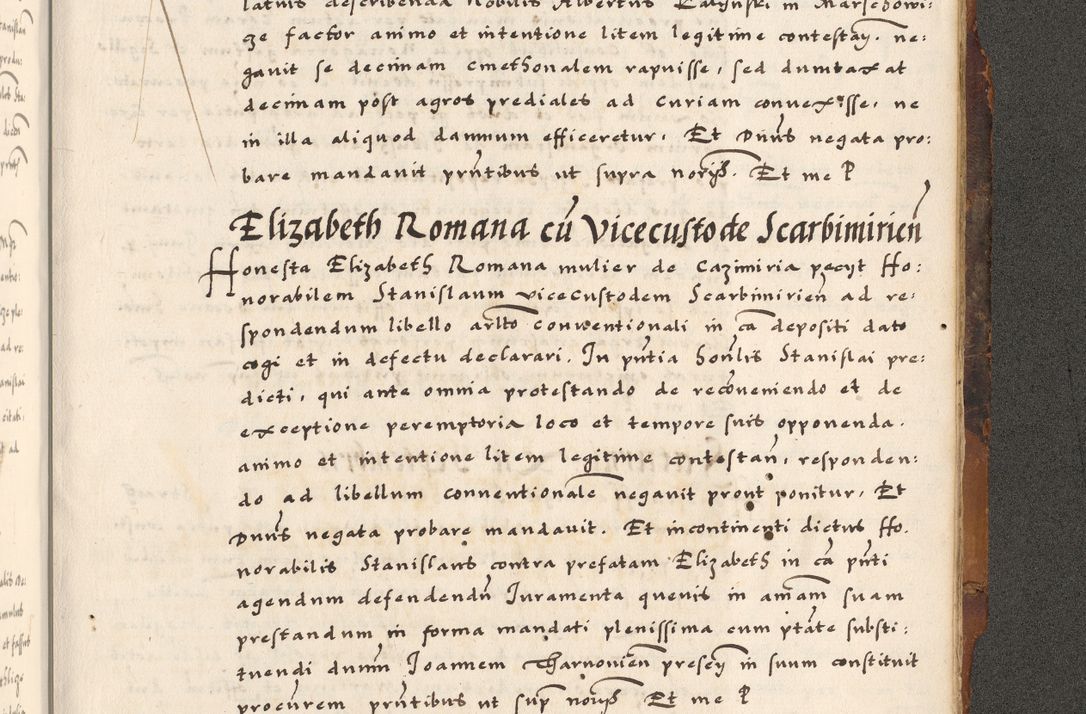 latius describenda Nobilis Albertus Ratynski in Marschowi⸗
ge factor animo et intentione litem legitime contestan. ne:
gauit se decimam cmethonalem rapuisse, sed dumtaxat
decimam post agros prediales ad curiam conuexisse, ne
in illa aliquod damnum efficeretur. Et Dnus negata pro:
bare mandauit pntibus ut supra norijs. Et me P
Elizabeth Romana cu Vicecustode Scarbimirien
Honesta Elizabeth Romana mulier de Cazimiria pecyt Ho:
norabilem Stanislaum vicecustodem Scarbimirien ad re:
spondendum libello arlto conuentionali in ca depositi dato
cogi et in defectu declarari. In pntia Honlis Stanislai pre:
dicti, qui ante omnia protestando de reconueniendo et de
exceptione peremptoria loco et tempore suis opponenda.
animo et intentione litem legitime contestan, responden:
do ad libellum conuentionale negauit prout ponitur, Et
Dnus negata probare mandauit. Et incontinenti dictus Ho.
norabilis Stanislaus contra prefatam Elizabeth in ca pnti
agendum defendendu Iuramenta queuis in amam suam
prestandum in forma mandati plenissima cum ptate substi:
tuendi dnum Joannem Tharnouien presen in suum constituit
procurem pntibus ut sup norijs Et me P